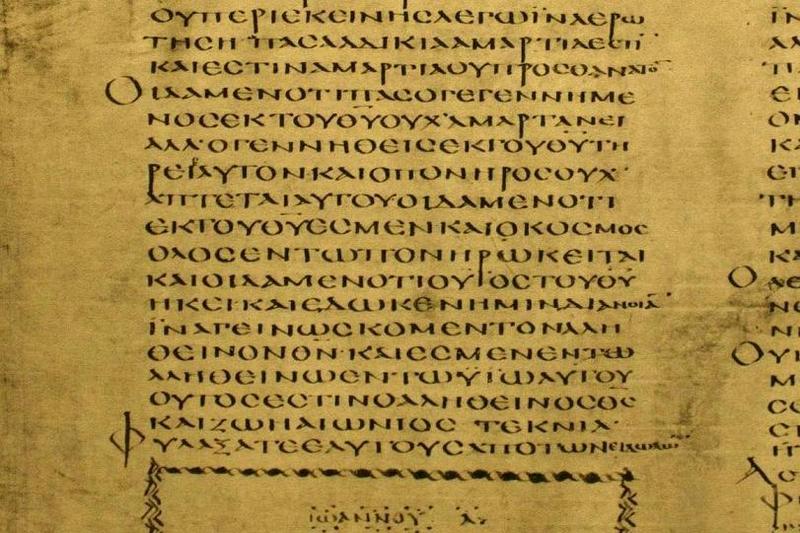 ΟΥΠΕΡΙΕΚΕΙΝΗϹΛΕΓΩΪΝΑΕΡΩ
ΤΗϹΗ ΠΑϹΑΑΔΙΚΙΑΑΜΑΡΤΙΑΕϹΤΙ
ΚΑΙΕϹΤΙΝΑΜΑΡΤΙΑΟΥΠΡΟϹΘΑΝΑΤΟ
ΟΙΔΑΜΕΝΟΤΙΠΑϹΟΓΕΓΕΝΝΗΜΕ
ΝΟϹΕΚΤΟΥΘΥΟΥΧΑΜΑΡΤΑΝΕΙ
ΑΛΛΟΓΕΝΝΗΘΕΙϹΕΚΤΟΥΘΥΤΗ
ΡΕΙΕΑΥΤΟΝΚΑΙΟΠΟΝΗΡΟϹΟΥΧ
ΑΠΤΕΤΑΙΑΥΤΟΥΟΙΔΑΜΕΝΟΤΙ
ΕΚΤΟΥΘΥΕϹΜΕΝΚΑΙΟΚΟϹΜΟϹ
ΟΛΟϹΕΝΤΩΠΟΝΗΡΩΚΕΙΤΑΙ
ΚΑΙΟΙΔΑΜΕΝΟΤΙΟΥΙΟϹΤΟΥΘΥ
ΗΚΕΙΚΑΙΕΔΩΚΕΝΗΜΙΝΔΙΑΝΟΙΑ
ΪΝΑΓΕΙΝΩϹΚΟΜΕΝΤΟΝΑΛΗ
ΘΕΙΝΟΝΘΝ·ΚΑΙΕϹΜΕΝΕΝΤΩ
ΑΛΗΘΕΙΝΩΕΝΤΩΥΙΩΑΥΤΟΥ
ΟΥΤΟϹΕϹΤΙΝΟΑΛΗΘΕΙΝΟϹΘϹ
ΚΑΙΖΩΗΑΙΩΝΙΟϹ ΤΕΚΝΙΑ·
ΦΥΛΑΞΑΤΕΕΑΥΤΟΥϹΑΠΟΤΩΝΕΙΔΩΛΩΝ
ΪΩΑΝΝΟΥ Α